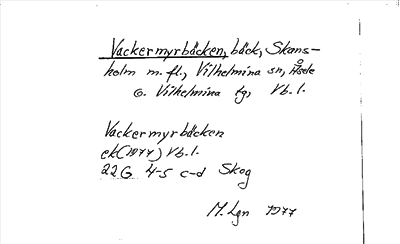 Vackermyrbäcken, bäck, Skans-
holm m. fl., Vilhelmina sn, Åsele
o. Vilhelmina tg, Vb. l.
Vackermyrbäcken
ek (1977) Vb. l.
22G 4-5 c-d Skog
M. Lgn 1977